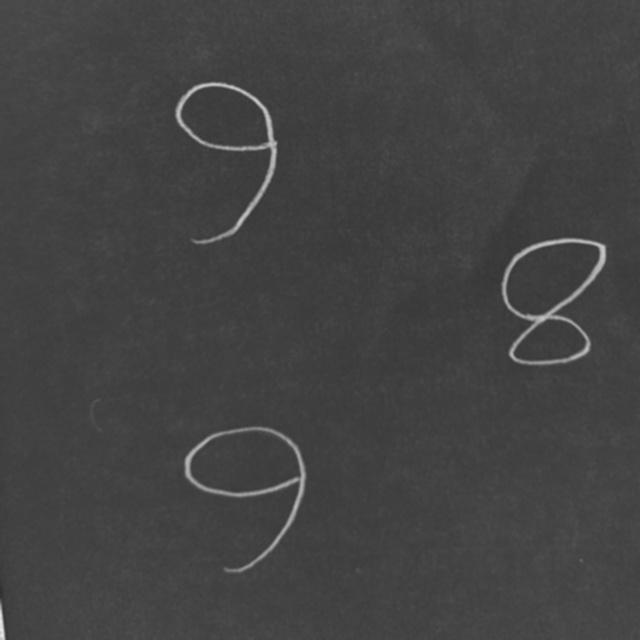 9
8
9